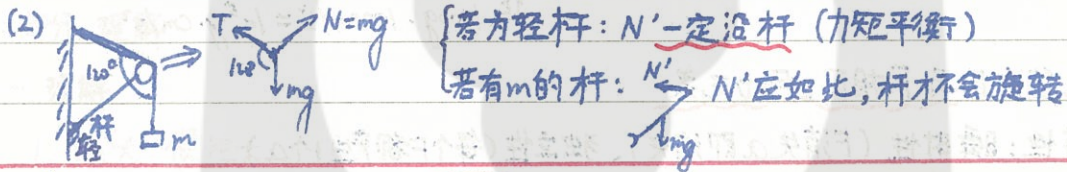 (2) 120° 轻杆 m T N=mg 120° mg 若为轻杆：N'一定沿杆 (力矩平衡)
若有m的杆： N' mg N'应如此，杆才不会旋转